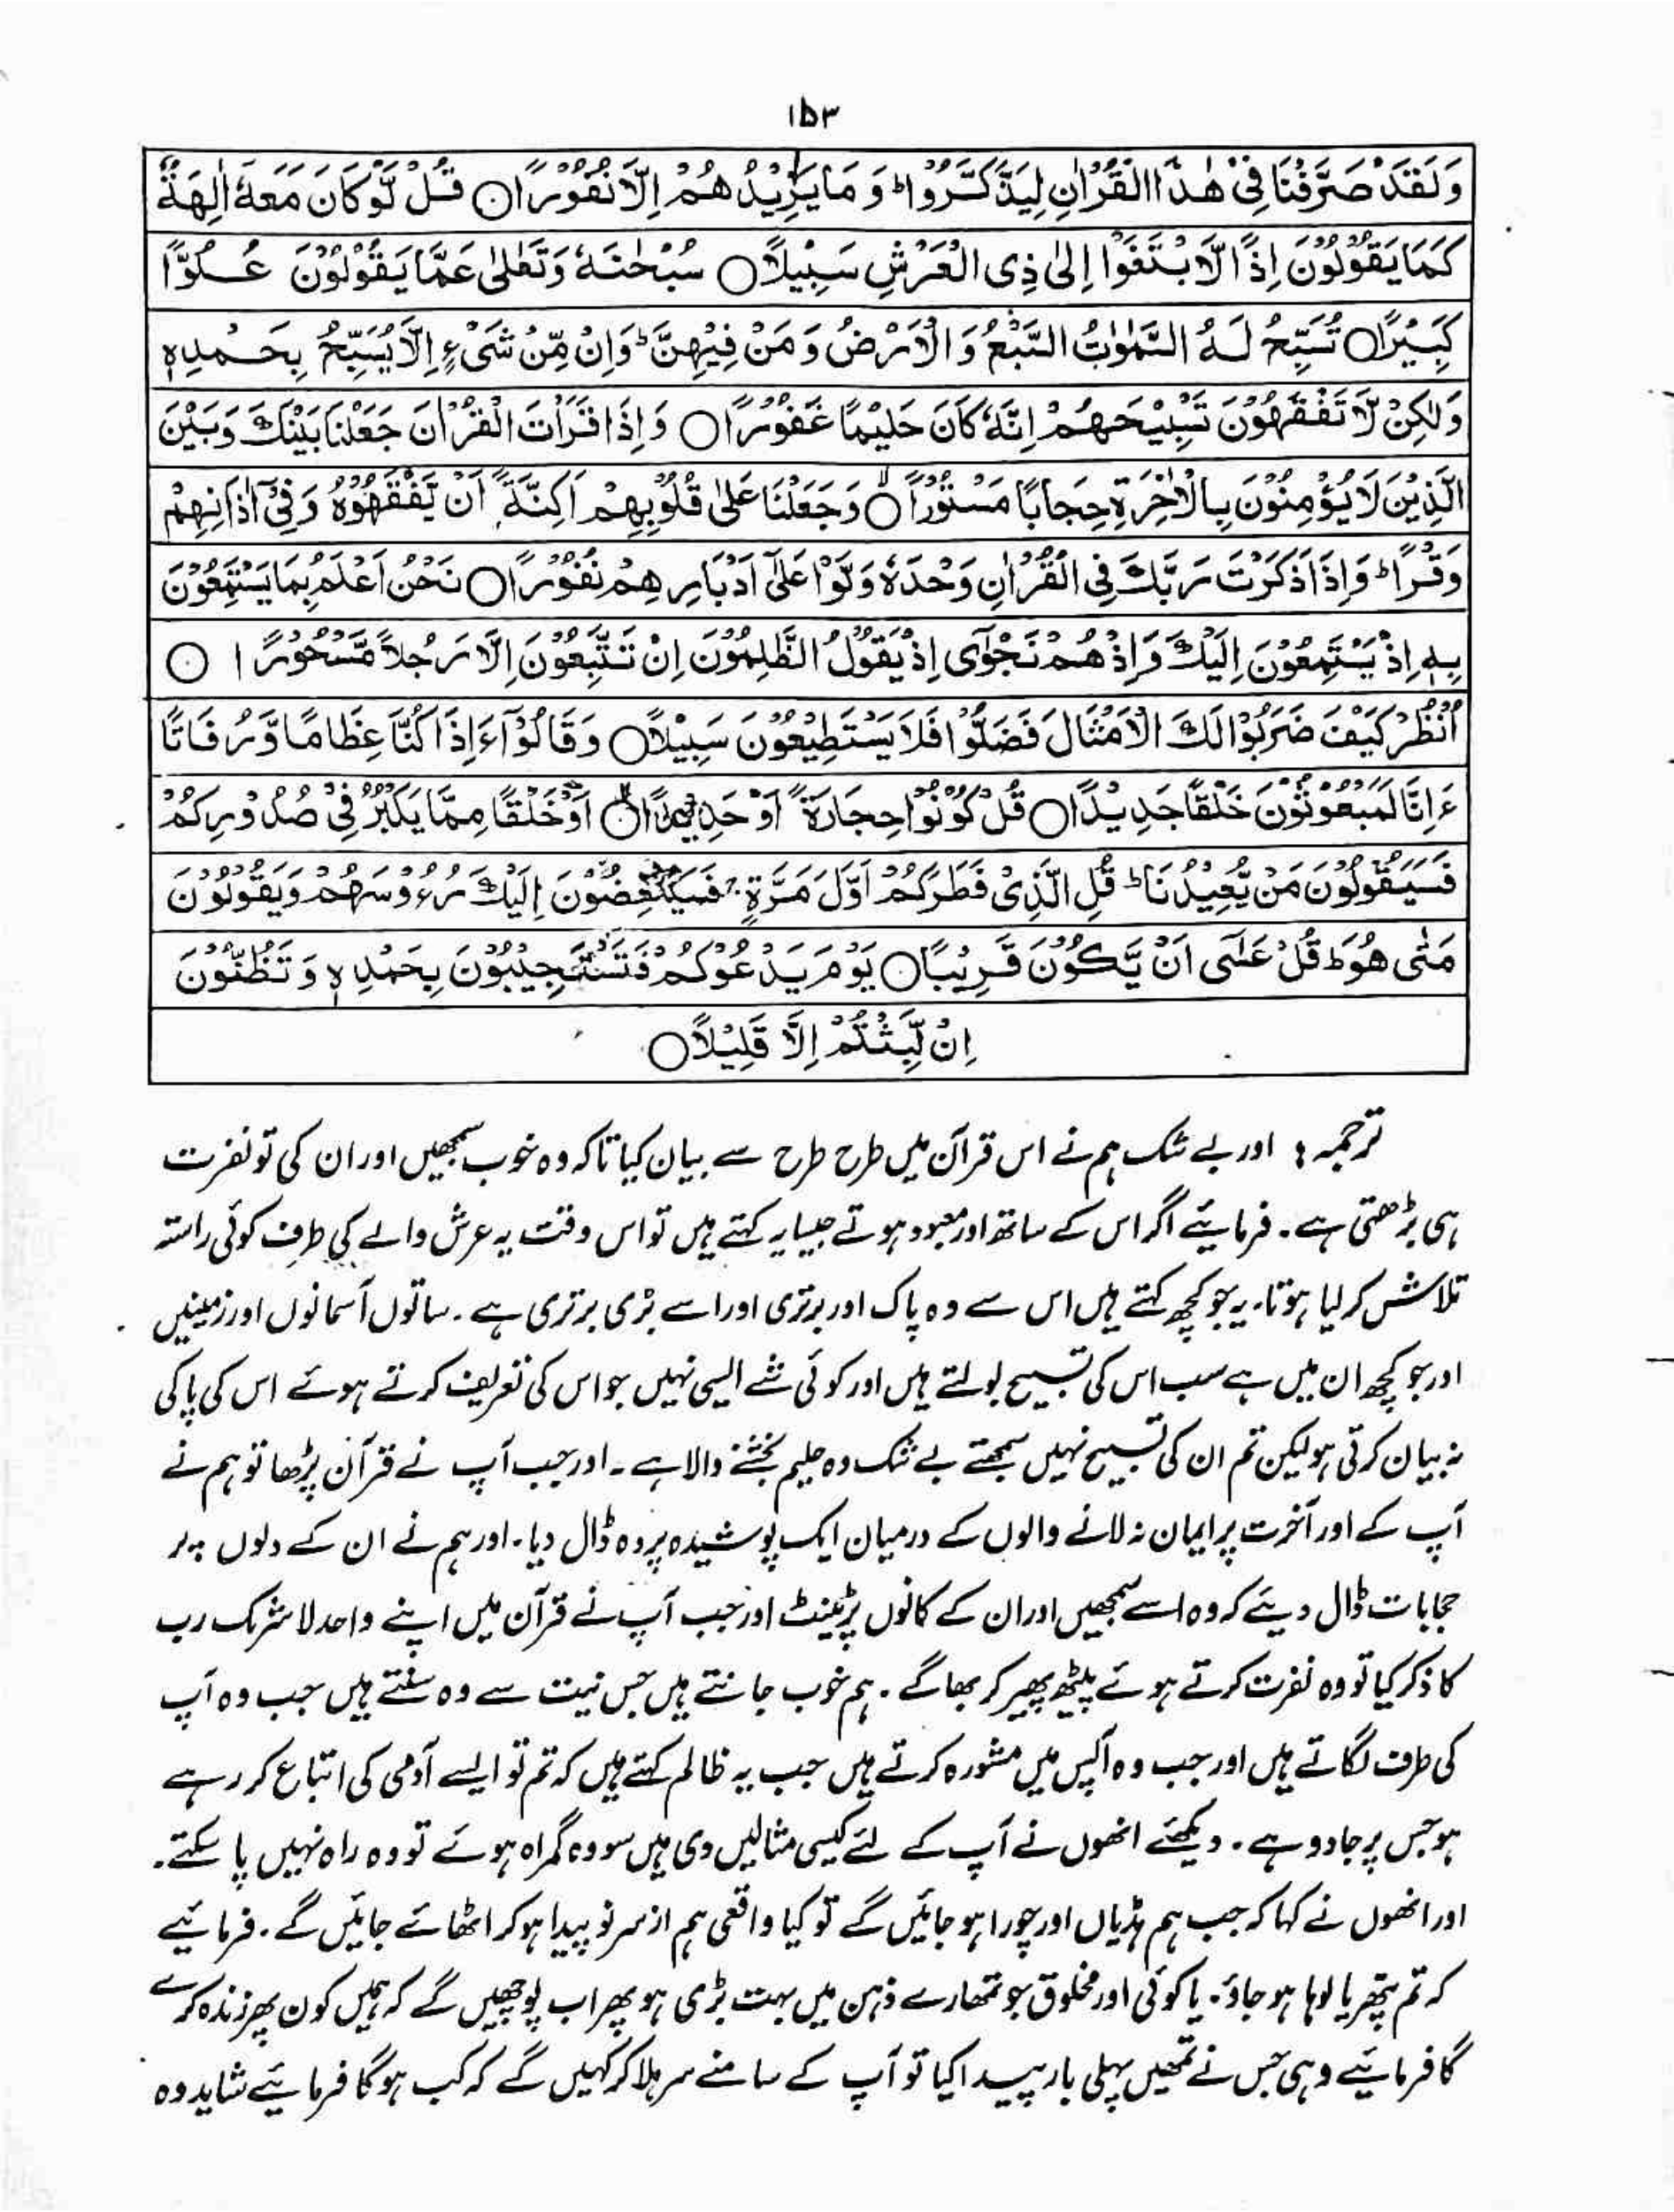 ۱۵۳
وَلَقَدْ صَرَّفْنَا فِیْ هٰذَا الْقُرْاٰنِ لِیَذَّكَّرُوْا ؕ وَ مَا یَزِیْدُهُمْ اِلَّا نُفُوْرًا ○ قُلْ لَّوْ كَانَ مَعَهٗٓ اٰلِهَةٌ
كَمَا یَقُوْلُوْنَ اِذًا لَّابْتَغَوْا اِلٰی ذِی الْعَرْشِ سَبِیْلًا ○ سُبْحٰنَهٗ وَتَعٰلٰی عَمَّا یَقُوْلُوْنَ عُلُوًّا
كَبِیْرًا ○ تُسَبِّحُ لَهُ السَّمٰوٰتُ السَّبْعُ وَ الْاَرْضُ وَ مَنْ فِیْهِنَّ ؕ وَاِنْ مِّنْ شَیْءٍ اِلَّا یُسَبِّحُ بِحَمْدِهٖ
وَلٰكِنْ لَّا تَفْقَهُوْنَ تَسْبِیْحَهُمْ اِنَّهٗ كَانَ حَلِیْمًا غَفُوْرًا ○ وَ اِذَا قَرَاْتَ الْقُرْاٰنَ جَعَلْنَا بَیْنَكَ وَ بَیْنَ
الَّذِیْنَ لَا یُؤْمِنُوْنَ بِالْاٰخِرَةِ حِجَابًا مَسْتُوْرًا ○ وَجَعَلْنَا عَلٰی قُلُوْبِهِمْ اَكِنَّةً اَنْ یَّفْقَهُوْهُ وَ فِیْٓ اٰذَانِهِمْ
وَقْرًا ؕ وَاِذَا ذَكَرْتَ رَبَّكَ فِی الْقُرْاٰنِ وَحْدَهٗ وَلَّوْا عَلٰٓی اَدْبَارِهِمْ نُفُوْرًا ○ نَحْنُ اَعْلَمُ بِمَا یَسْتَمِعُوْنَ
بِهٖٓ اِذْ یَسْتَمِعُوْنَ اِلَیْكَ وَ اِذْ هُمْ نَجْوٰٓی اِذْ یَقُوْلُ الظّٰلِمُوْنَ اِنْ تَتَّبِعُوْنَ اِلَّا رَجُلًا مَّسْحُوْرًا ○
اُنْظُرْ كَیْفَ ضَرَبُوْا لَكَ الْاَمْثَالَ فَضَلُّوْا فَلَا یَسْتَطِیْعُوْنَ سَبِیْلًا ○ وَقَالُوْٓا ءَاِذَا كُنَّا عِظَامًا وَّ رُفَاتًا
ءَاِنَّا لَمَبْعُوْثُوْنَ خَلْقًا جَدِیْدًا ○ قُلْ كُوْنُوْا حِجَارَةً اَوْ حَدِیْدًا ○ اَوْ خَلْقًا مِمَّا یَكْبُرُ فِیْ صُدُوْرِكُمْ
فَسَیَقُوْلُوْنَ مَنْ یُّعِیْدُنَا ؕ قُلِ الَّذِیْ فَطَرَكُمْ اَوَّلَ مَرَّةٍ ۚ فَسَیُنْغِضُوْنَ اِلَیْكَ رُءُوْسَهُمْ وَیَقُوْلُوْنَ
مَتٰی هُوَ ؕ قُلْ عَسٰٓی اَنْ یَّكُوْنَ قَرِیْبًا ○ یَوْمَ یَدْعُوْكُمْ فَتَسْتَجِیْبُوْنَ بِحَمْدِهٖ وَ تَظُنُّوْنَ
اِنْ لَّبِثْتُمْ اِلَّا قَلِیْلًا ○
ترجمہ : اور بے شک ہم نے اس قرآن میں طرح طرح سے بیان کیا تاکہ وہ خوب سمجھیں اور ان کی تو نفرت
ہی بڑھتی ہے۔ فرمائیے اگر اس کے ساتھ اور معبود ہوتے جیسا یہ کہتے ہیں تو اس وقت یہ عرش والے کی طرف کوئی راستہ
تلاش کر لیا ہوتا۔ یہ جو کچھ کہتے ہیں اس سے وہ پاک اور برتری اور اسے بڑی برتری ہے۔ ساتوں آسمانوں اور زمینیں
اور جو کچھ ان میں ہے سب اس کی تسبیح بولتے ہیں اور کوئی شے ایسی نہیں جو اس کی تعریف کرتے ہوئے اس کی پاکی
نہ بیان کرتی ہو لیکن تم ان کی تسبیح نہیں سمجھتے بے شک وہ حلیم بخشنے والا ہے۔ اور جب آپ نے قرآن پڑھا تو ہم نے
آپ کے اور آخرت پر ایمان نہ لانے والوں کے درمیان ایک پوشیدہ پردہ ڈال دیا۔ اور ہم نے ان کے دلوں پر
حجابات ڈال دیئے کہ وہ اسے سمجھیں اور ان کے کانوں پر ٹینٹ اور جب آپ نے قرآن میں اپنے واحد لاشریک رب
کا ذکر کیا تو وہ نفرت کرتے ہوئے پیٹھ پھیر کر بھاگے۔ ہم خوب جانتے ہیں جس نیت سے وہ سنتے ہیں جب وہ آپ
کی طرف لگاتے ہیں اور جب وہ آپس میں مشورہ کرتے ہیں جب یہ ظالم کہتے ہیں کہ تم تو ایسے آدمی کی اتباع کر رہے
ہو جس پر جادو ہے۔ دیکھئے انھوں نے آپ کے لئے کیسی مثالیں دی ہیں سو وہ گمراہ ہوئے تو وہ راہ نہیں پا سکتے۔
اور انھوں نے کہا کہ جب ہم ہڈیاں اور چورا ہو جائیں گے تو کیا واقعی ہم از سر نو پیدا ہو کر اٹھائے جائیں گے۔ فرمائیے
کہ تم پتھر یا لوہا ہو جاؤ۔ یا کوئی اور مخلوق جو تمھارے ذہن میں بہت بڑی ہو پھر اب پوچھیں گے کہ ہمیں کون پھر زندہ کرے
گا فرمائیے وہی جس نے تمھیں پہلی بار پیدا کیا تو آپ کے سامنے سر ہلا کر کہیں گے کہ کب ہوگا فرمائیے شاید وہ